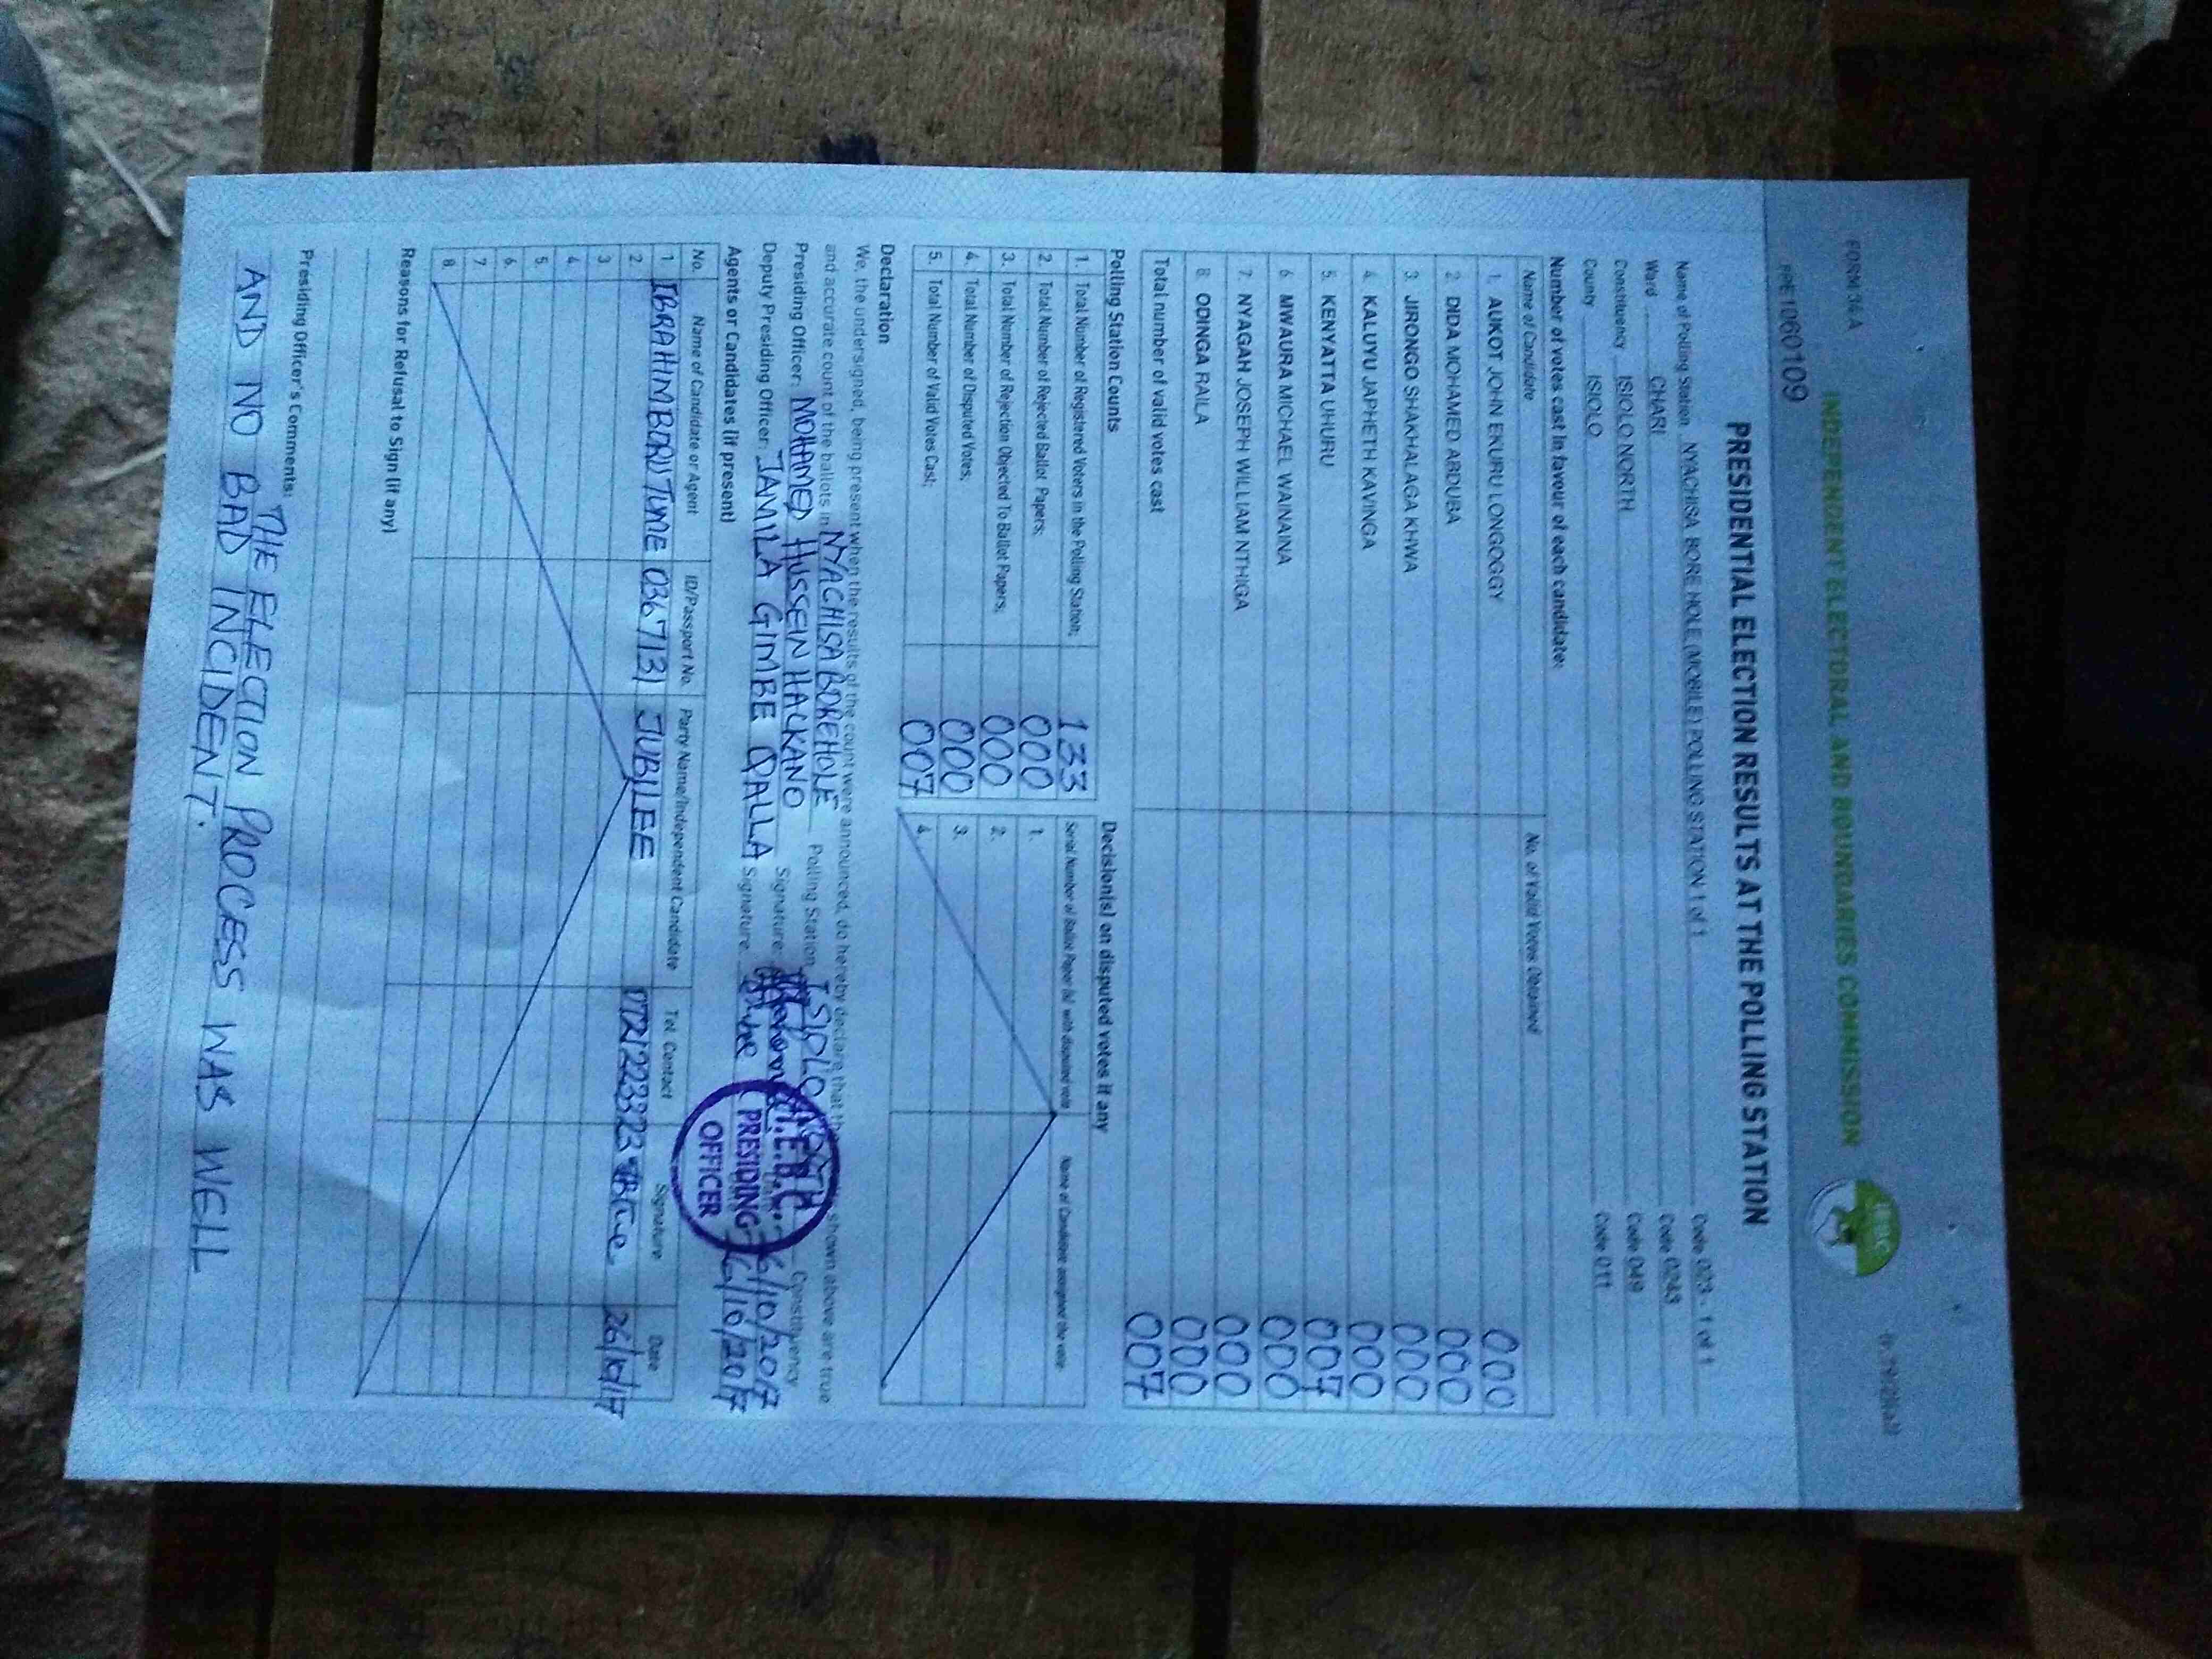 FORM 34 A
INDEPENDENT ELECTORAL AND BOUNDARIES COMMISSION
PPE1060109
PRESIDENTIAL ELECTION RESULTS AT THE POLLING STATION
Name of Polling Station NYACHISA BORE HOLE (MOBILE) POLLING STATION 1 of 1 Code 023 - 1 of 1
Ward CHARI Code 0243
Constituency ISIOLO NORTH Code 049
County ISIOLO Code 011
Number of votes cast in favour of each candidate:
Name of Candidate No. of Valid Votes Obtained
1. AUKOT JOHN EKURU LONGOGGY 000
2. DIDA MOHAMED ABDUBA 000
3. JIRONGO SHAKHALAGA KHWA 000
4. KALUYU JAPHETH KAVINGA 000
5. KENYATTA UHURU 007
6. MWAURA MICHAEL WAINAINA 000
7. NYAGAH JOSEPH WILLIAM NTHIGA 000
8. ODINGA RAILA 000
Total number of valid votes cast 007
Polling Station Counts
1. Total Number of Registered Voters in the Polling Station; 133
2. Total Number of Rejected Ballot Papers; 000
3. Total Number of Rejection Objected To Ballot Papers; 000
4. Total Number of Disputed Votes; 000
5. Total Number of Valid Votes Cast; 007
Decision(s) on disputed votes if any
Serial Number of Ballot Paper (s) with disputed vote Name of Candidate assigned the vote
1.
2.
3.
4.
Declaration
We, the undersigned, being present when the results of the count were announced, do hereby declare that the shown above are true
and accurate count of the ballots in NYACHISA BOREHOLE Polling Station ISIOLO NORTH Constituency
Presiding Officer: MOHAMED HUSSEIN HALKANO Signature: 26/10/2017
Deputy Presiding Officer: JAMILA GIMBE QALLA Signature: 26/10/2017
I.E.B.C
PRESIDING
OFFICER
Agents or Candidates (if present)
No. Name of Candidate or Agent ID/Passport No. Party Name/Independent Candidate Tel. Contact Signature Date
1 IBRAHIM BORU TUME 0367131 JUBILEE 0721223323 26/10/17
2.
3
4.
5.
6.
7
8.
Reasons for Refusal to Sign (if any)
Presiding Officer's Comments:
THE ELECTION PROCESS WAS WELL
AND NO BAD INCIDENT.